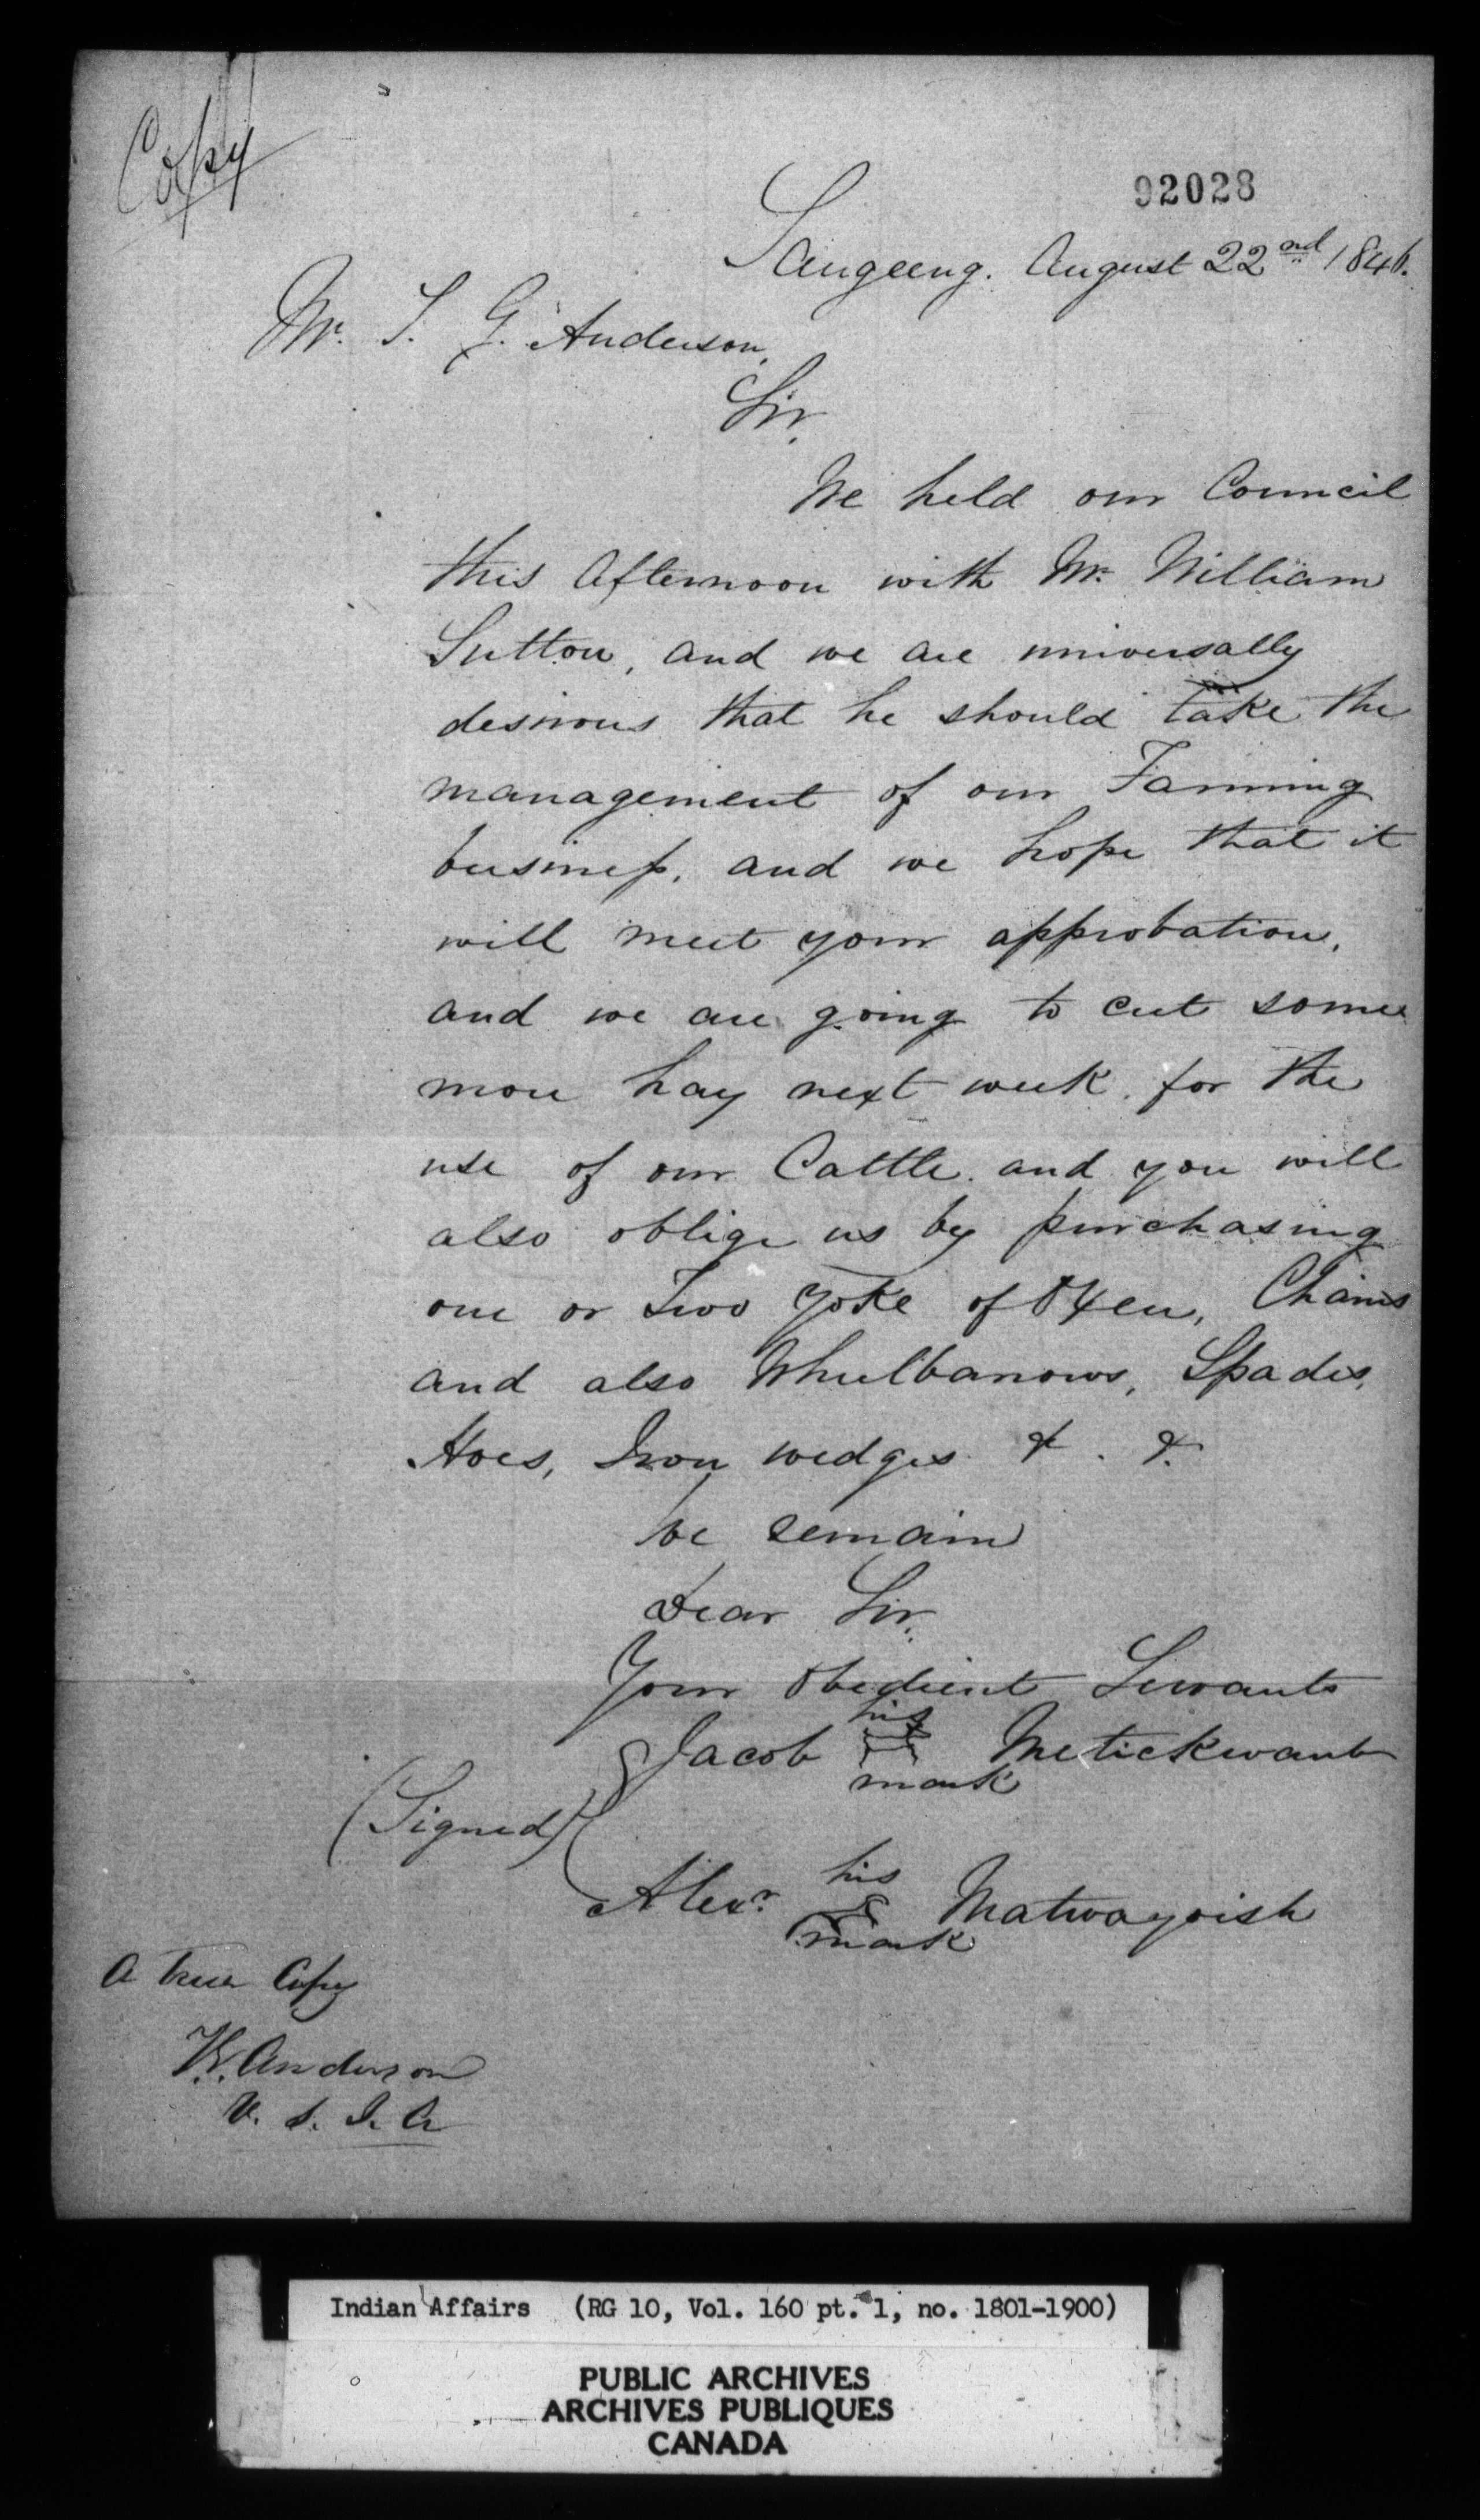 Copy
92028
Saugeeng. August 22nd 1846.
Mr. T. G. Anderson,
Sir,
We held our Council
this Afternoon with Mr. William
Sutton, and we are universally
desirous that he should take the
management of our Farming
business, and we hope that it
will meet your approbation,
and we are going to cut some
more hay next week, for the
use of our Cattle. and you will
also oblige us by purchasing
one or Two Yoke of Oxen, Chains
and also Wheelbarrows, Spades,
Hoes, Iron wedges & . &.
We remain
Dear Sir,
Your Obedient Servants
his
Jacob Metickwaub
mark
(Signed)
his
Alexr. Matwayoish
mark
A True Copy
Anderson
V. S. I. A
Indian Affairs (RG 10, Vol. 160 pt. 1, no. 1801-1900)
PUBLIC ARCHIVES
ARCHIVES PUBLIQUES
CANADA